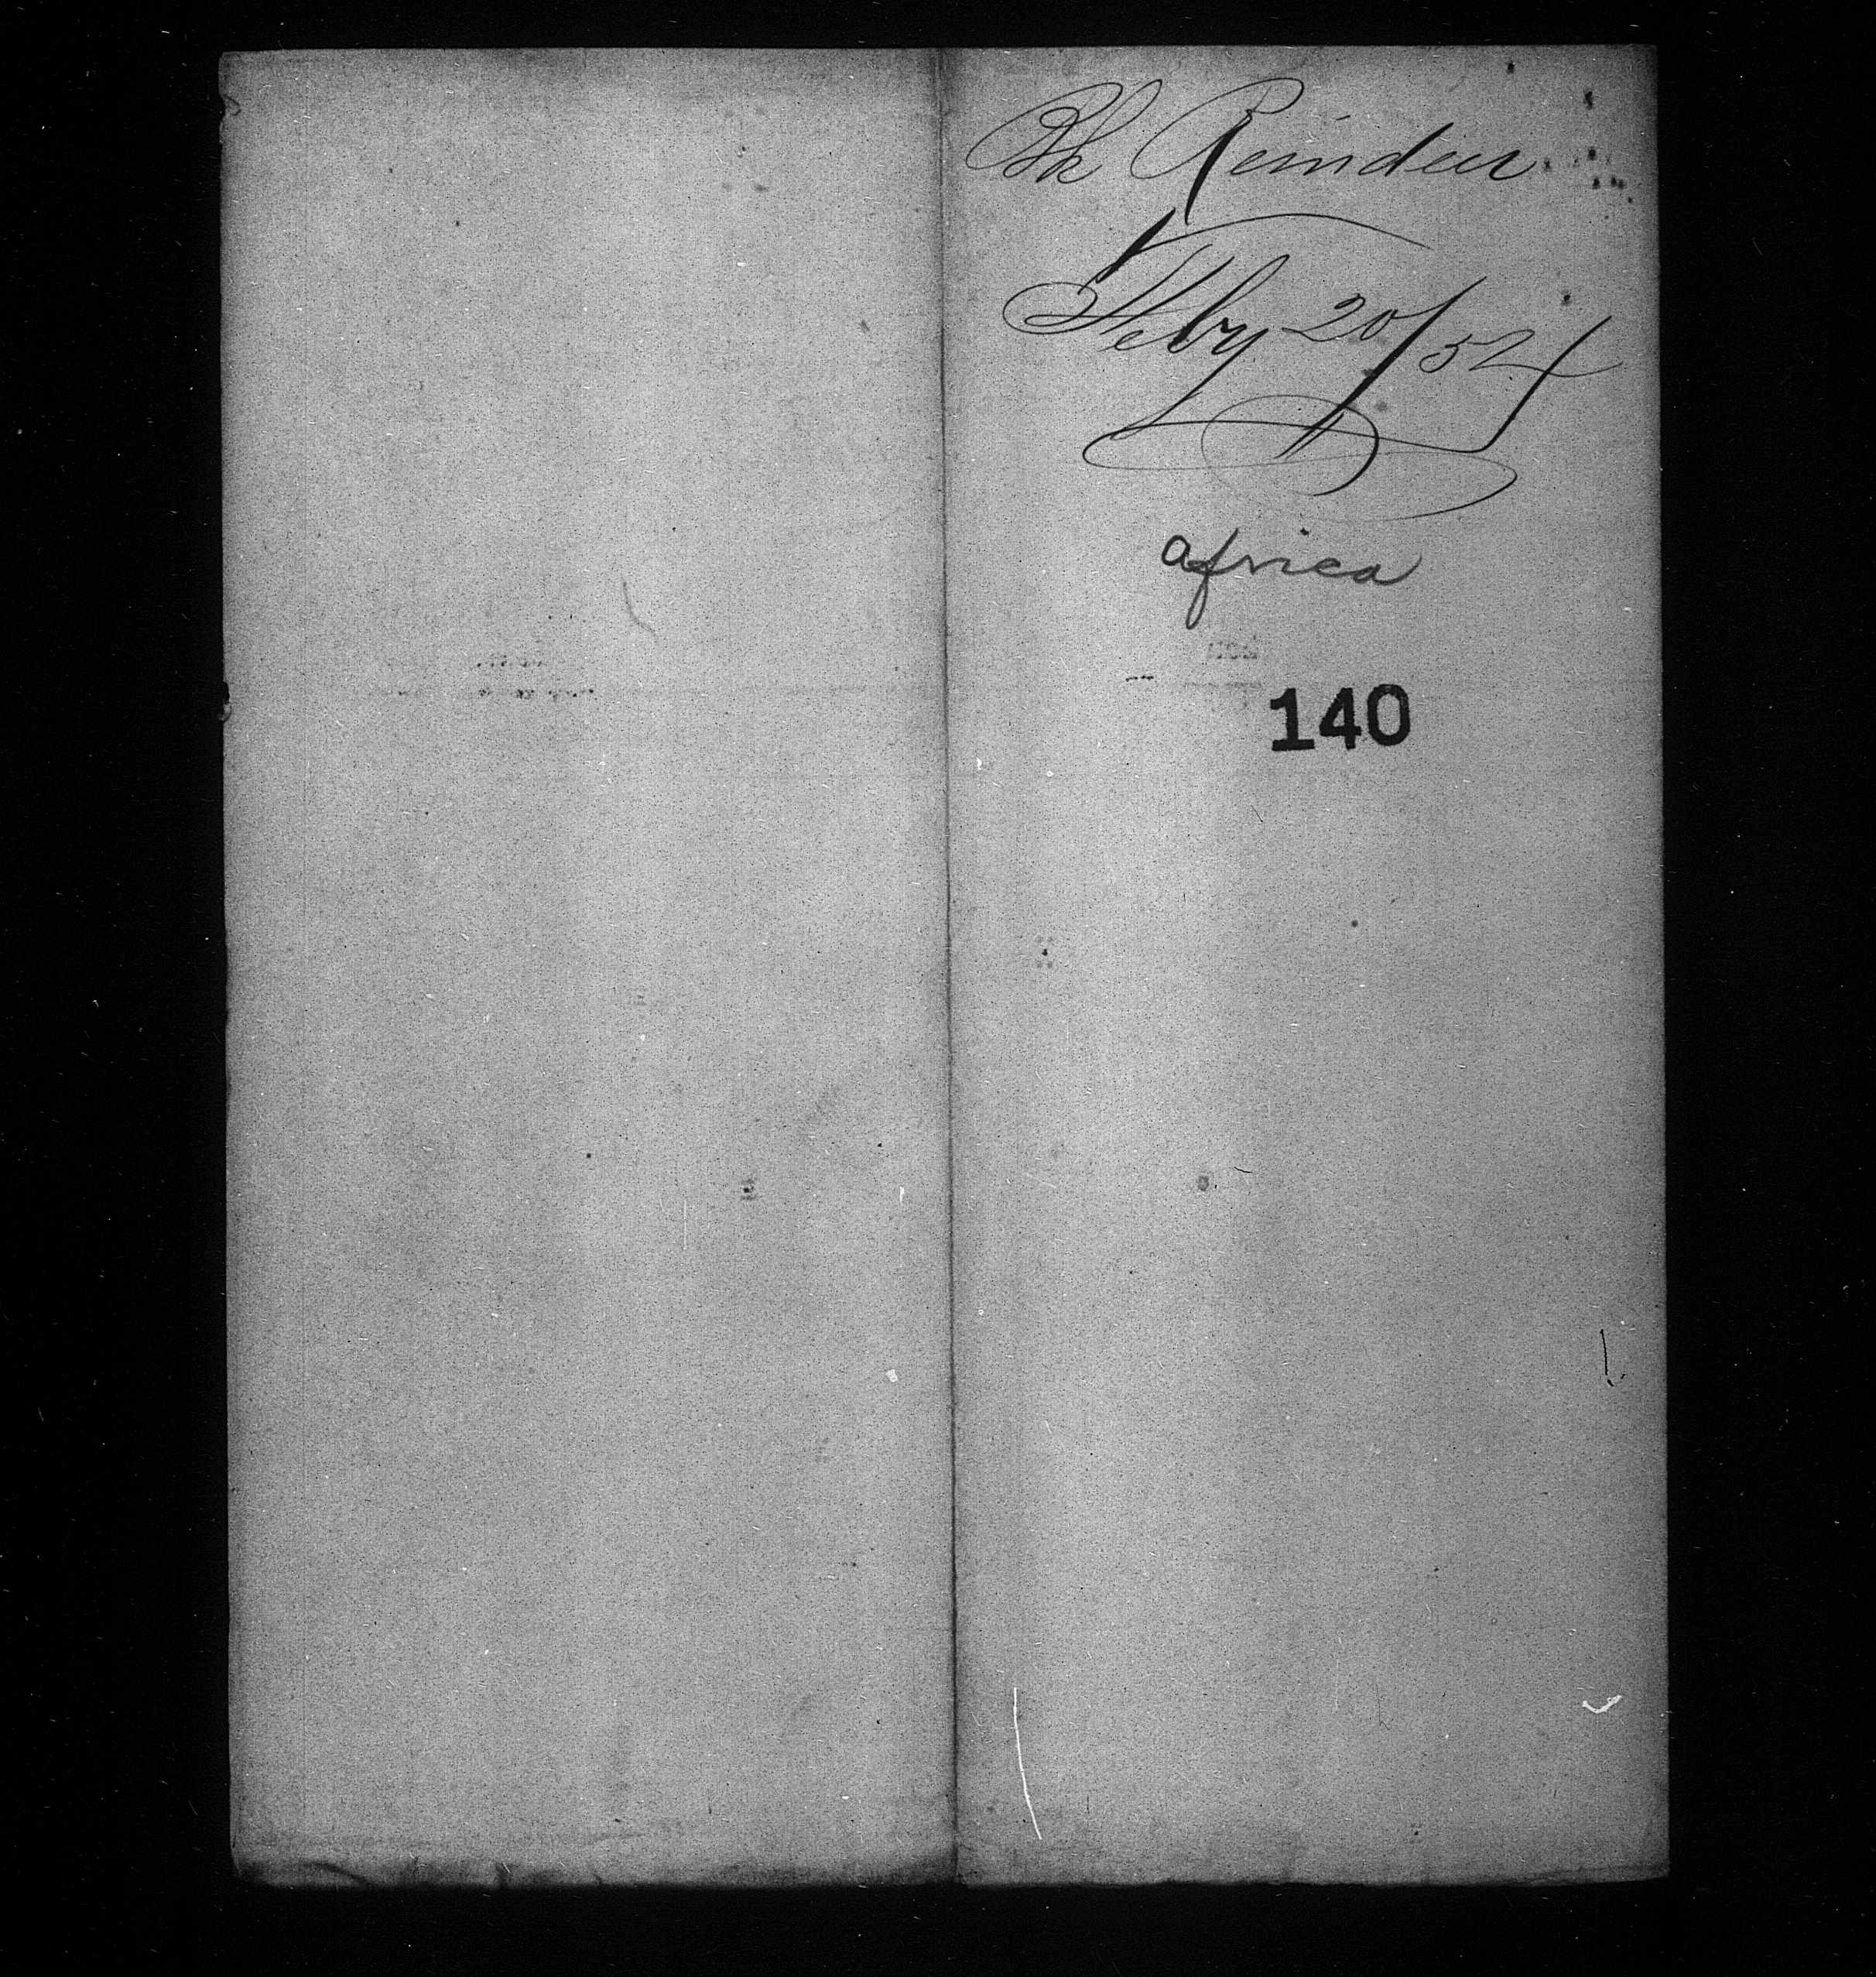 Bk Reindeer
Feby 20/54
africa
140